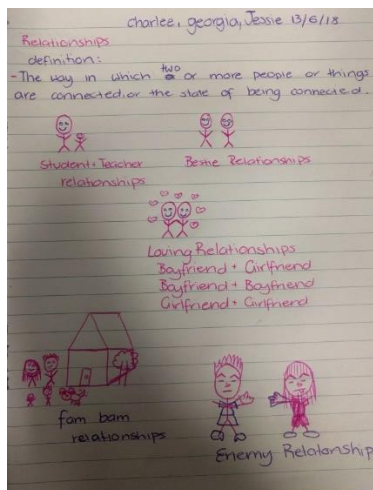 charlee, georgia, Jessie 13/6/18
Relationships
definition:
- The way in which two or more people or things
are connected, or the state of being connected.
Student + Teacher
relationships
Bestie Relationships
Loving Relationships
Boyfriend + Girlfriend
Boyfriend + Boyfriend
Girlfriend + Girlfriend
fam bam
relationships
Enemy Relationship